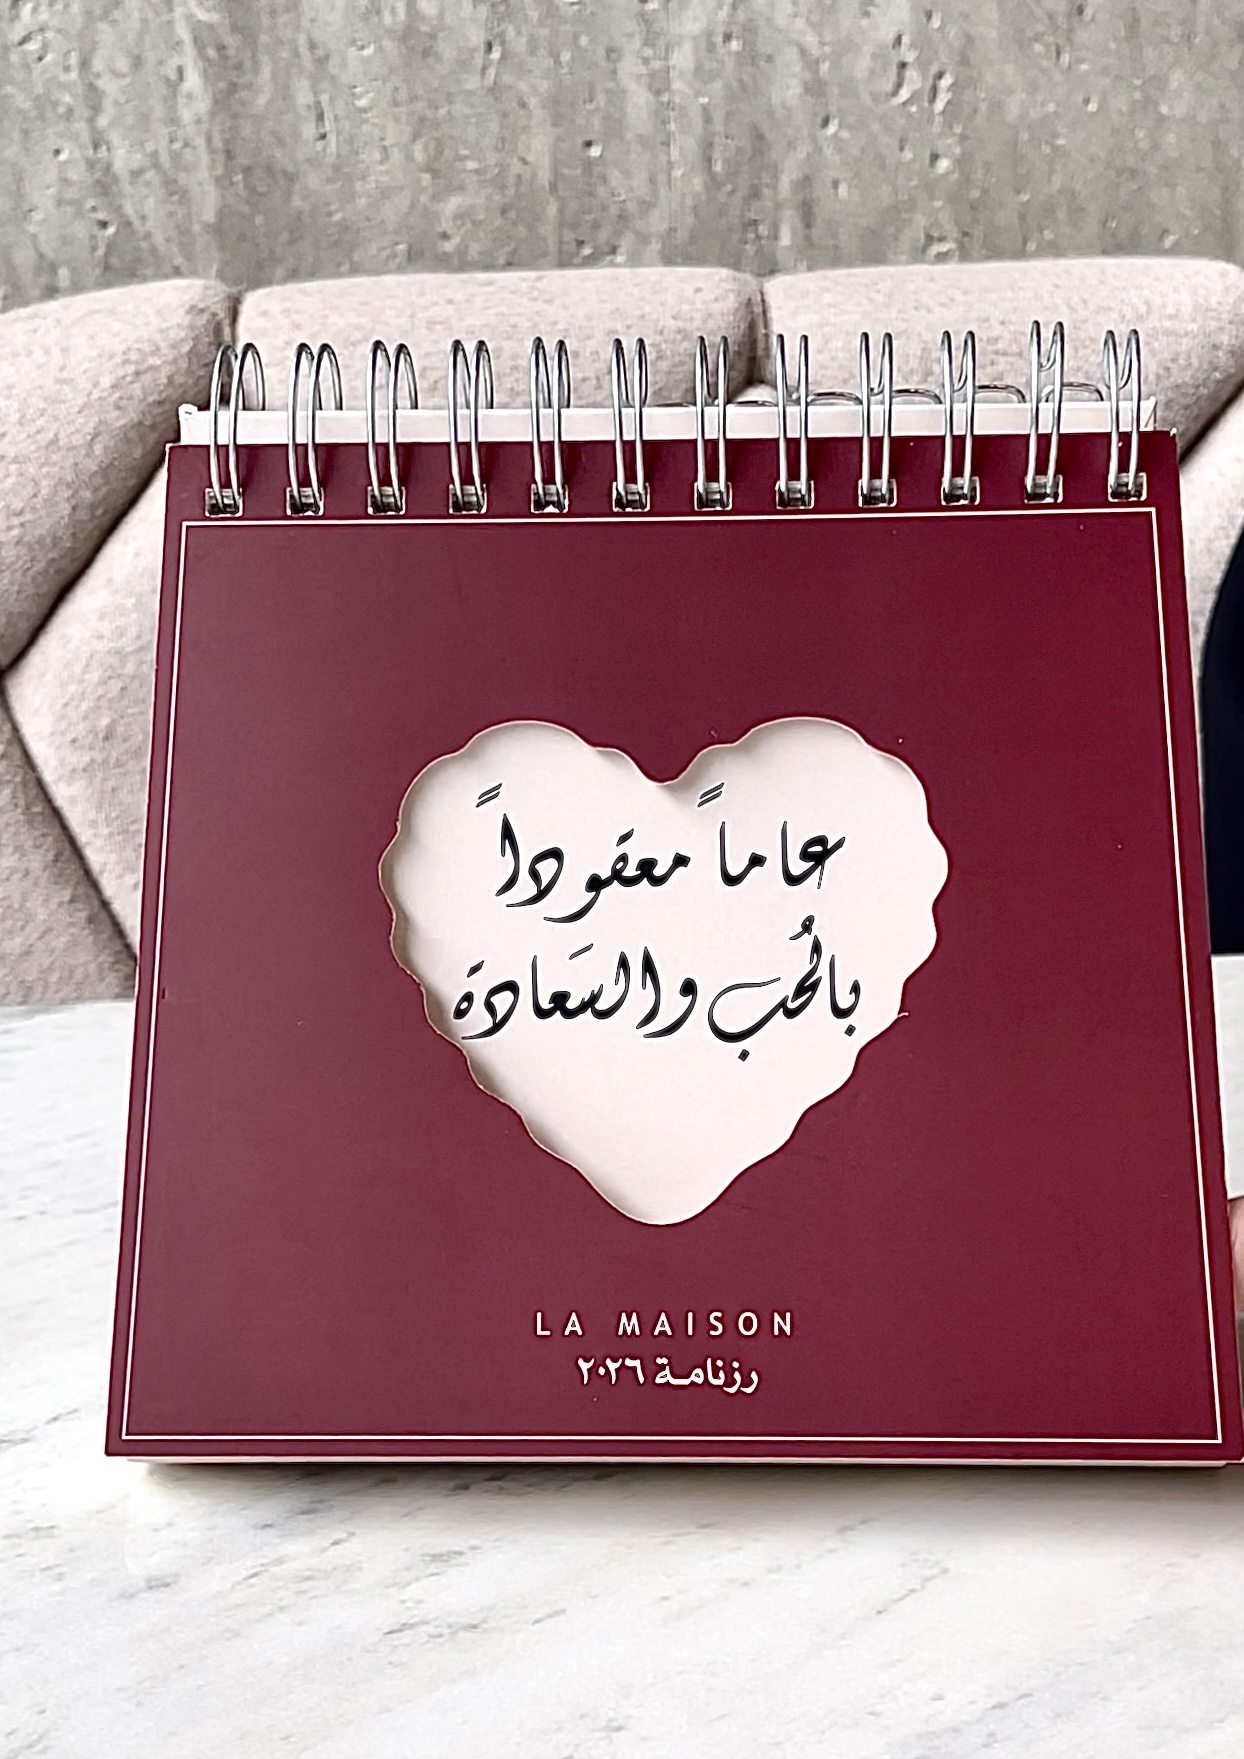 عاماً معقوداً
بالحُب والسَعادة
LA MAISON
رزنامة ٢٠٢٦